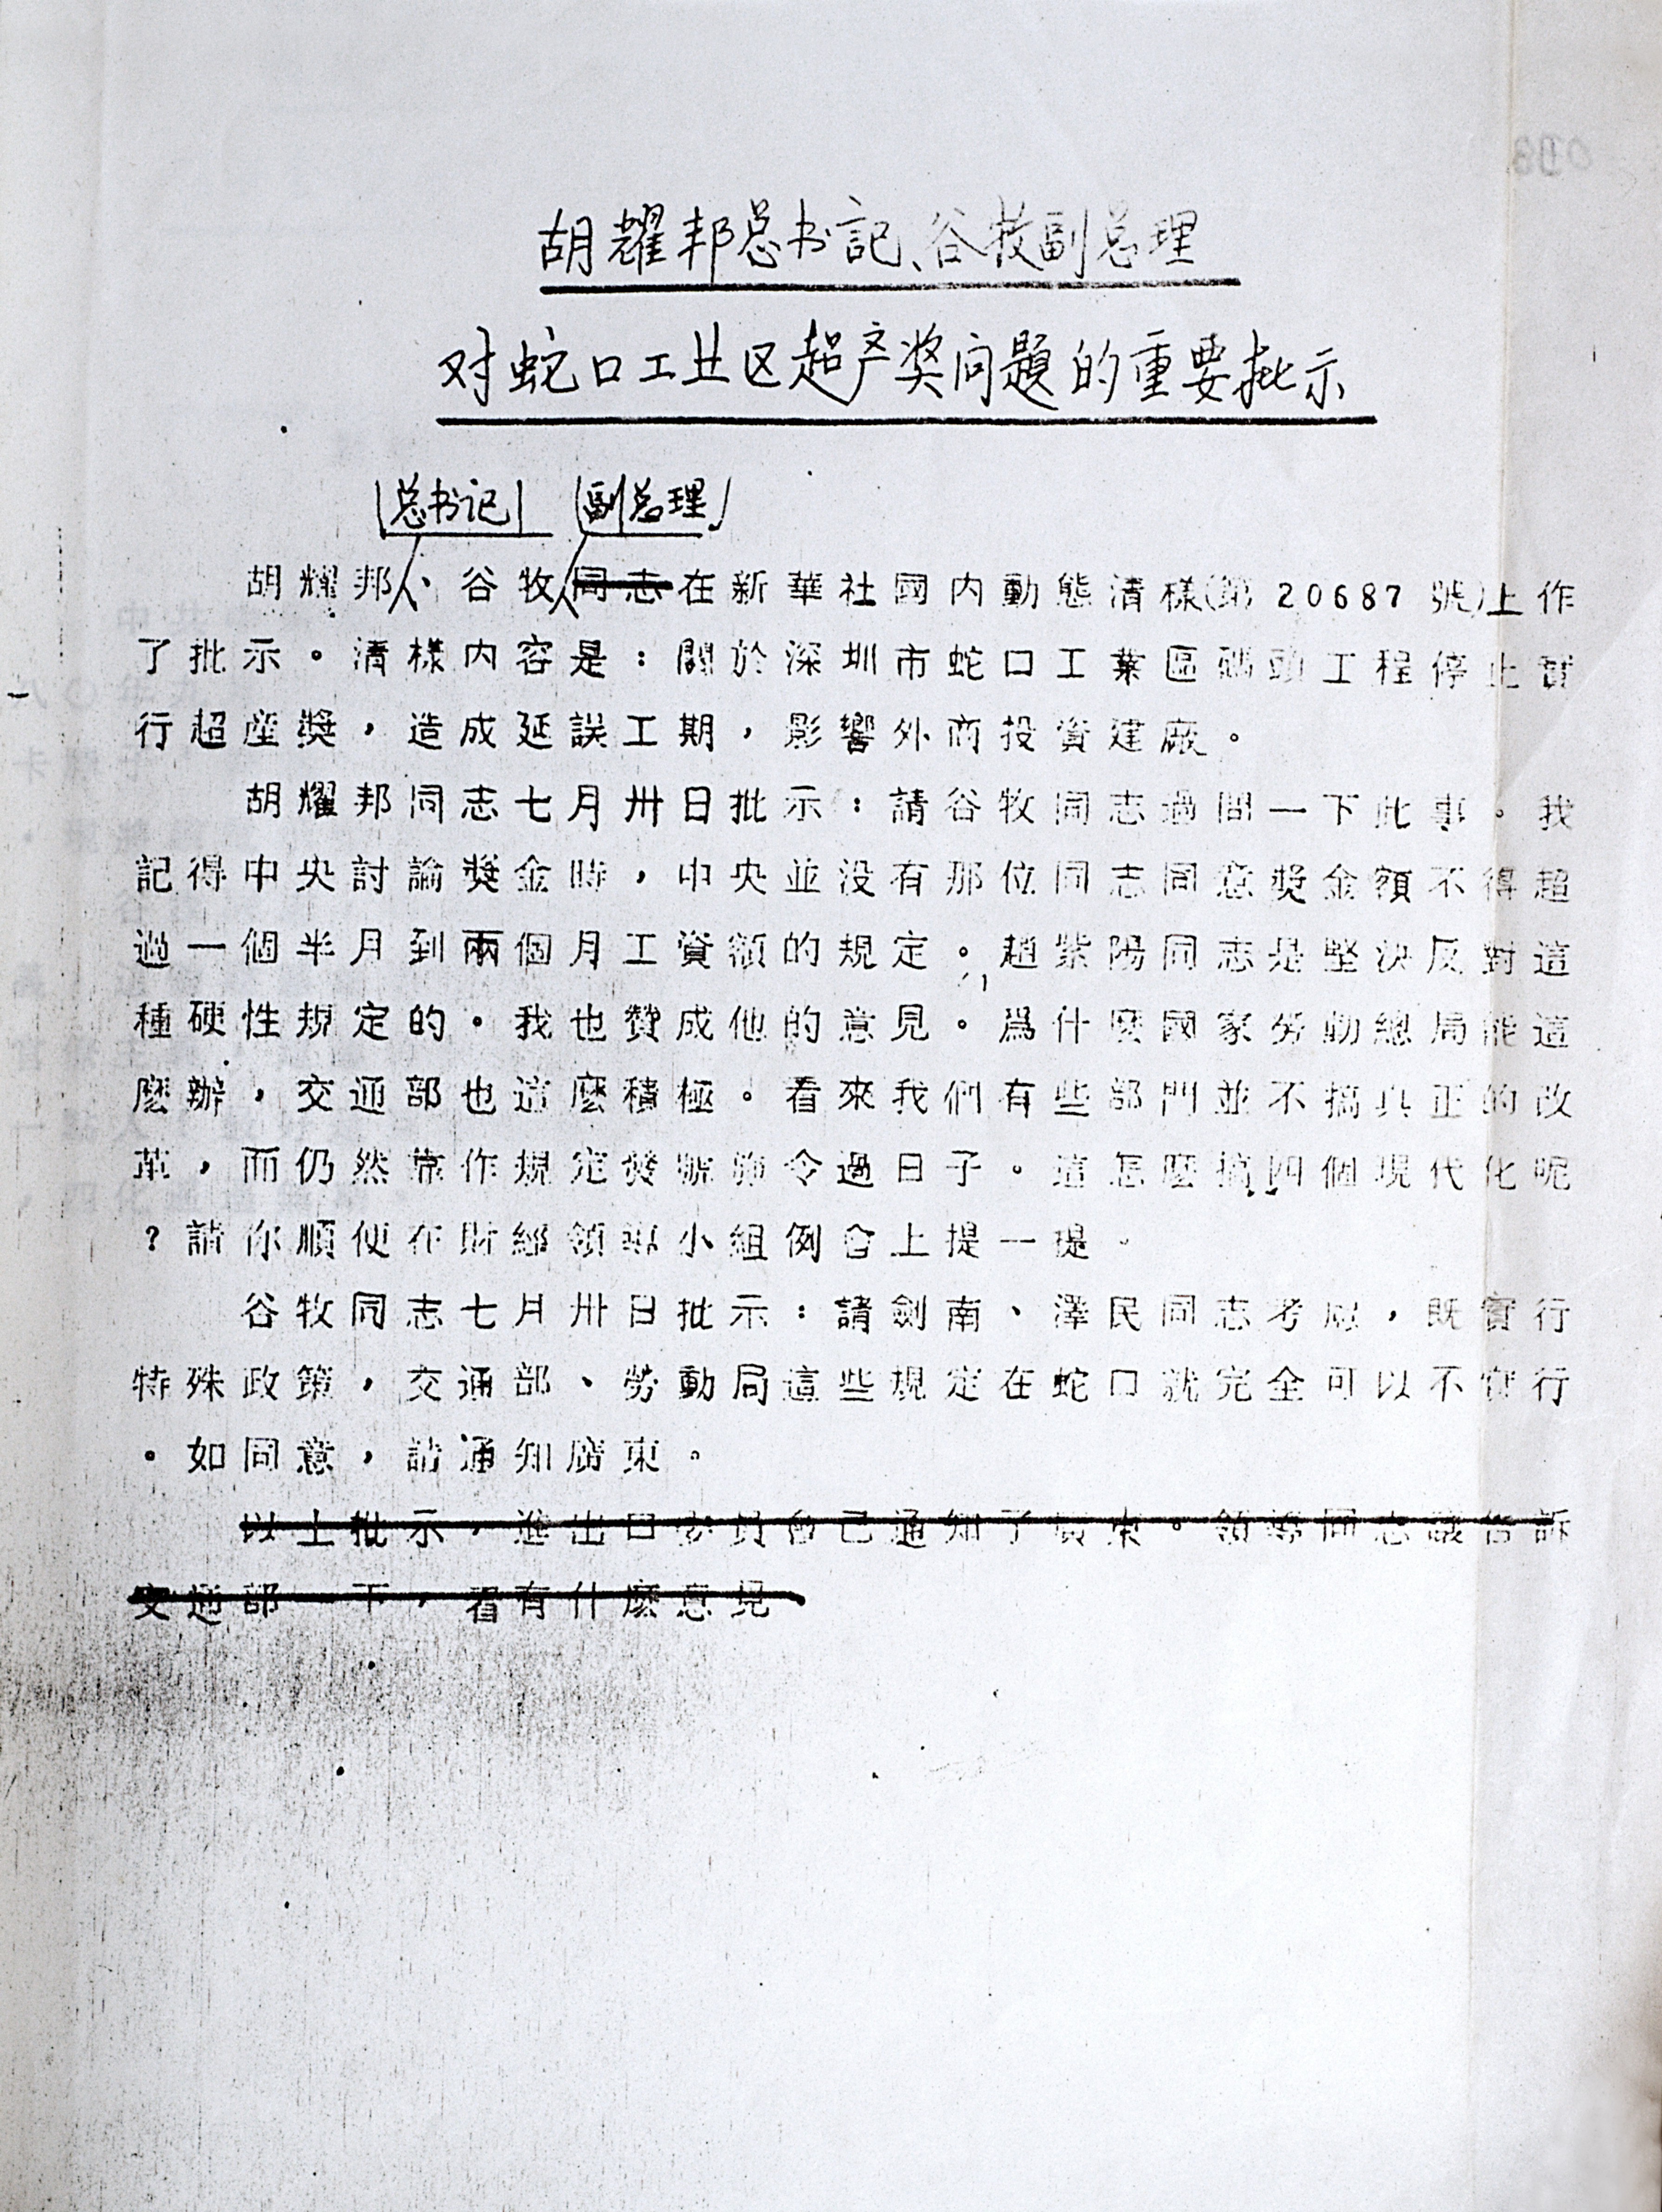 胡耀邦总书記、谷牧副总理
对蛇口工业区超产奖问題的重要批示
总书记 副总理
胡耀邦、谷牧同志在新華社國内動態清樣(第20687號)上作
了批示。清樣内容是：關於深圳市蛇口工業區碼頭工程停止實
行超産獎，造成延誤工期，影響外商投資建廠。
胡耀邦同志七月卅日批示：請谷牧同志過問一下此事。我
記得中央討論獎金時，中央並没有那位同志同意獎金額不得超
過一個半月到兩個月工資額的規定。趙紫陽同志是堅決反對這
種硬性規定的。我也贊成他的意見。爲什麽國家勞動總局能這
麽辦，交通部也這麽積極。看來我們有些部門並不搞真正的改
革，而仍然靠作規定發號施令過日子。這怎麽搞四個現代化呢
？請你順便在財經領導小組例會上提一提。
谷牧同志七月卅日批示：請劍南、澤民同志考慮，既實行
特殊政策，交通部、勞動局這些規定在蛇口就完全可以不實行
。如同意，請通知廣東。
以上批示，進出口委員會已通知了廣東。領導同志議告訴
交通部一下，看有什麽意見